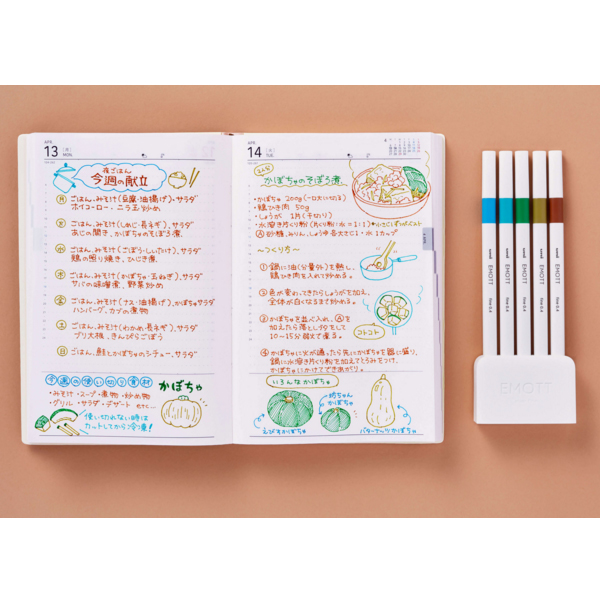 APR.
13
MON
夜ごはん
今週の献立
月 ごはん、みそ汁(豆腐・油揚げ)、サラダ
ホイコーロー、ニラ玉炒め
火 ごはん、みそ汁(しめじ・長ネギ)、サラダ
あじの開き、かぼちゃのそぼろ煮
水 ごはん、みそ汁(ごぼう・しいたけ)、サラダ
鶏の照り焼き、ひじき煮
木 ごはん、みそ汁(かぼちゃ・玉ねぎ)、サラダ
サバの味噌煮、野菜炒め
金 ごはん、みそ汁(ナス・油揚げ)、かぼちゃサラダ
ハンバーグ、カブの煮物
土 ごはん、みそ汁(わかめ・長ネギ)、サラダ
ブリ大根、きんぴらごぼう
日 ごはん、鮭とかぼちゃのシチュー、サラダ
今週の使い切り食材
かぼちゃ
・みそ汁・スープ・煮物・炒め物
・グリル・サラダ・デザート etc...
使い切れない時は
カットしてから冷凍!
APR.
14
TUE
かぼちゃのそぼろ煮
・かぼちゃ 200g(一口大に切る)
・鶏ひき肉 50g
・しょうが 1片(千切り)
・水溶き片くり粉(片くり粉:水=1:1)
Ⓐ砂糖、みりん、しょうゆ各大さじ1・水1カップ
〜つくり方〜
① 鍋に油(分量外)を熱し、
鶏ひき肉を入れて炒める。
② 色が変わってきたらしょうがを加え、
全体が白くなるまで炒める。
③ かぼちゃを並べ入れ、Ⓐを
加えたら落としブタをして
10〜15分弱火で煮る。
コトコト
④ かぼちゃに火が通ったら先にかぼちゃを器に盛り、
鍋に水溶き片栗粉を加えてとろみをつけ、
かぼちゃにかけてできあがり。
いろんなかぼちゃ
坊ちゃん
かぼちゃ
えびすかぼちゃ
バターナッツかぼちゃ
uni EMOTT fine 0.4
uni EMOTT fine 0.4
uni EMOTT fine 0.4
uni EMOTT fine 0.4
uni EMOTT fine 0.4
EMOTT